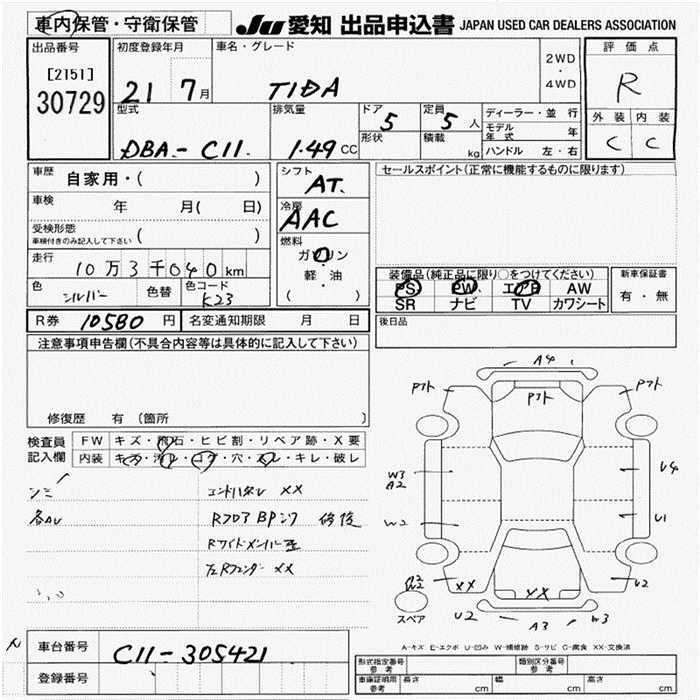 車内保管・守衛保管
JU 愛知 出品申込書 JAPAN USED CAR DEALERS ASSOCIATION
出品番号
[2151]
30729
初度登録年月
21 7月
車名・グレード
TIDA
2WD
・
4WD
評価点
R
外装 内装
C C
型式
DBA-C11
排気量
1.49 CC
ドア
5
形状
定員
5 人
積載
kg
ディーラー・並行
モデル年式 年
ハンドル 左・右
車歴 自家用・( )
車検 年 月( 日)
受検形態
車検付きのみ記入して下さい ( )
走行 10万3千040km
色 シルバー 色替 色コード K23
シフト
AT.
冷房
AAC
燃料
ガソリン
・
軽・油
( )
セールスポイント(正常に機能するものに限ります)
装備品(純正品に限り○をつけてください)
PS PW エアB AW
SR ナビ TV カワシート
新車保証書
有・無
後日品
R券 10580 円 名変通知期限 月 日
注意事項申告欄(不具合内容等は具体的に記入して下さい)
修復歴 有 [箇所 ]
検査員記入欄
FW キズ・飛石・ヒビ割・リペア跡・X要
内装 キズ・汚レ・コゲ・穴・スレ・キレ・破レ
コアハタレ XX
RフロアBPシワ 修後
Rサイドメンバー歪
左Rフェンダー XX
A4
Pフト
Pフト
Pフト
W3
A2
U4
W2
U1
XX
XX
U2
U2
A3
W3
スペア
A-キズ E-エクボ U-凹み W-補修跡 S-サビ C-腐食 XX-交換済
車台番号 C11-305421
登録番号
型式指定番号 参考
類別区分番号 参考
車庫証明用 参考 長さ cm 幅 cm 高さ cm